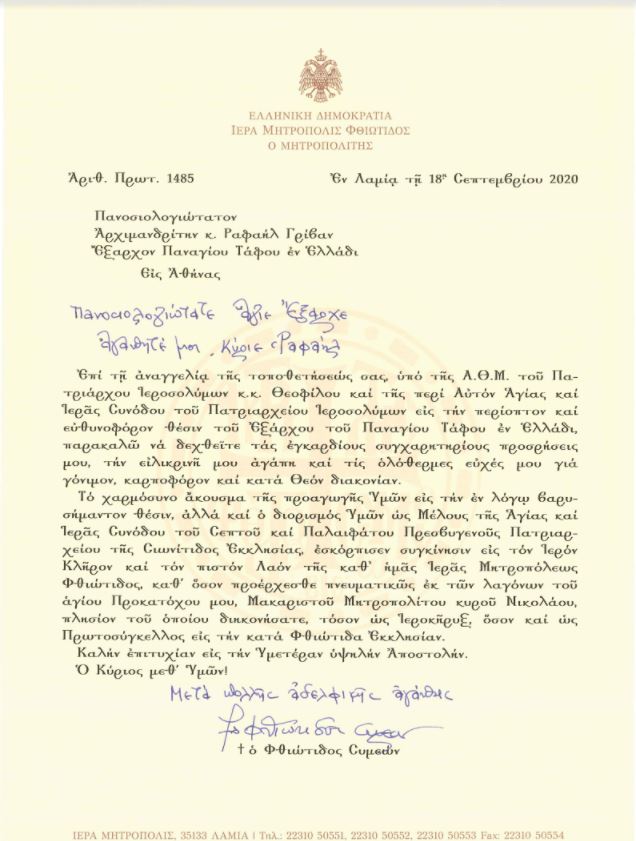 ΕΛΛΗΝΙΚΗ ΔΗΜΟΚΡΑΤΙΑ
ΙΕΡΑ ΜΗΤΡΟΠΟΛΙΣ ΦΘΙΩΤΙΔΟΣ
Ο ΜΗΤΡΟΠΟΛΙΤΗΣ
Ἀριθ. Πρωτ. 1485
Ἐν Λαμίᾳ τῇ 18ῃ Σεπτεμβρίου 2020
Πανοσιολογιώτατον
Ἀρχιμανδρίτην κ. Ραφαήλ Γρίβαν
Ἔξαρχον Παναγίου Τάφου ἐν Ἑλλάδι
Εἰς Ἀθήνας
Πανοσιολογιώτατε ἅγιε Ἔξαρχε
ἀγαπητέ μοι, Κύριε Ραφαήλ
Ἐπί τῇ ἀναγγελίᾳ τῆς τοποθετήσεώς σας, ὑπό τῆς Α.Θ.Μ. τοῦ Πα-
τριάρχου Ἱεροσολύμων κ.κ. Θεοφίλου καί τῆς περί Αὐτόν Ἁγίας καί
Ἱερᾶς Συνόδου τοῦ Πατριαρχείου Ἱεροσολύμων εἰς τήν περίοπτον καί
εὐθυνοφόρον θέσιν τοῦ Ἐξάρχου τοῦ Παναγίου Τάφου ἐν Ἑλλάδι,
παρακαλῶ νά δεχθεῖτε τάς ἐγκαρδίους συγχαρητηρίους προσρήσεις
μου, τήν εἰλικρινῆ μου ἀγάπη καί τίς ὁλόθερμες εὐχές μου γιά
γόνιμον, καρποφόρον καί κατά Θεόν διακονίαν.
Τό χαρμόσυνο ἄκουσμα τῆς προαγωγῆς Ὑμῶν εἰς τήν ἐν λόγῳ βαρυ-
σήμαντον θέσιν, ἀλλά καί ὁ διορισμός Ὑμῶν ὡς Μέλους τῆς Ἁγίας καί
Ἱερᾶς Συνόδου τοῦ Σεπτοῦ καί Παλαιφάτου Πρεσβυγενοῦς Πατριαρ-
χείου τῆς Σιωνίτιδος Ἐκκλησίας, ἐσκόρπισεν συγκίνησιν εἰς τόν Ἱερόν
Κλῆρον καί τόν πιστόν Λαόν τῆς καθ' ἡμᾶς Ἱερᾶς Μητροπόλεως
Φθιώτιδος, καθ' ὅσον προέρχεσθε πνευματικῶς ἐκ τῶν λαγόνων τοῦ
ἁγίου Προκατόχου μου, Μακαριστοῦ Μητροπολίτου κυροῦ Νικολάου,
πλησίον τοῦ ὁποίου διηκονήσατε, τόσον ὡς Ἱεροκῆρυξ, ὅσον καί ὡς
Πρωτοσύγκελλος εἰς τήν κατά Φθιώτιδα Ἐκκλησίαν.
Καλήν ἐπιτυχίαν εἰς τήν Ὑμετέραν ὑψηλήν Ἀποστολήν.
Ὁ Κύριος μεθ' Ὑμῶν!
Μετά πολλῆς ἀδελφικῆς ἀγάπης
† ὁ Φθιώτιδος Συμεών
ΙΕΡΑ ΜΗΤΡΟΠΟΛΙΣ, 35133 ΛΑΜΙΑ | Τηλ.: 22310 50551, 22310 50552, 22310 50553 Fax: 22310 50554